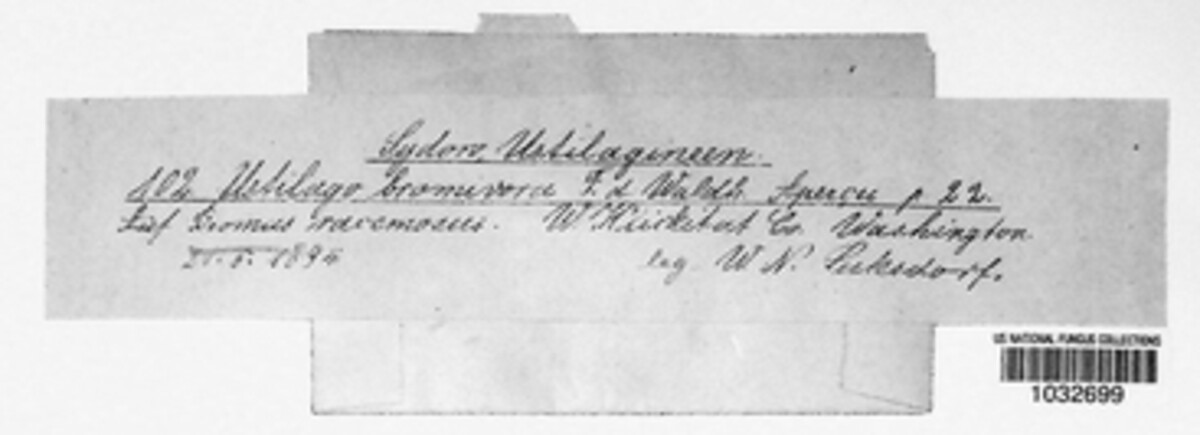 Sydow, Ustilagineen.
102 Ustilago bromivora F. d Waldh. Aperçu p 22.
Auf Bromus racemosus. W. Klickitat Co. Washington
1894
leg. W. N. Suksdorf.
US NATIONAL FUNGUS COLLECTIONS
1032699